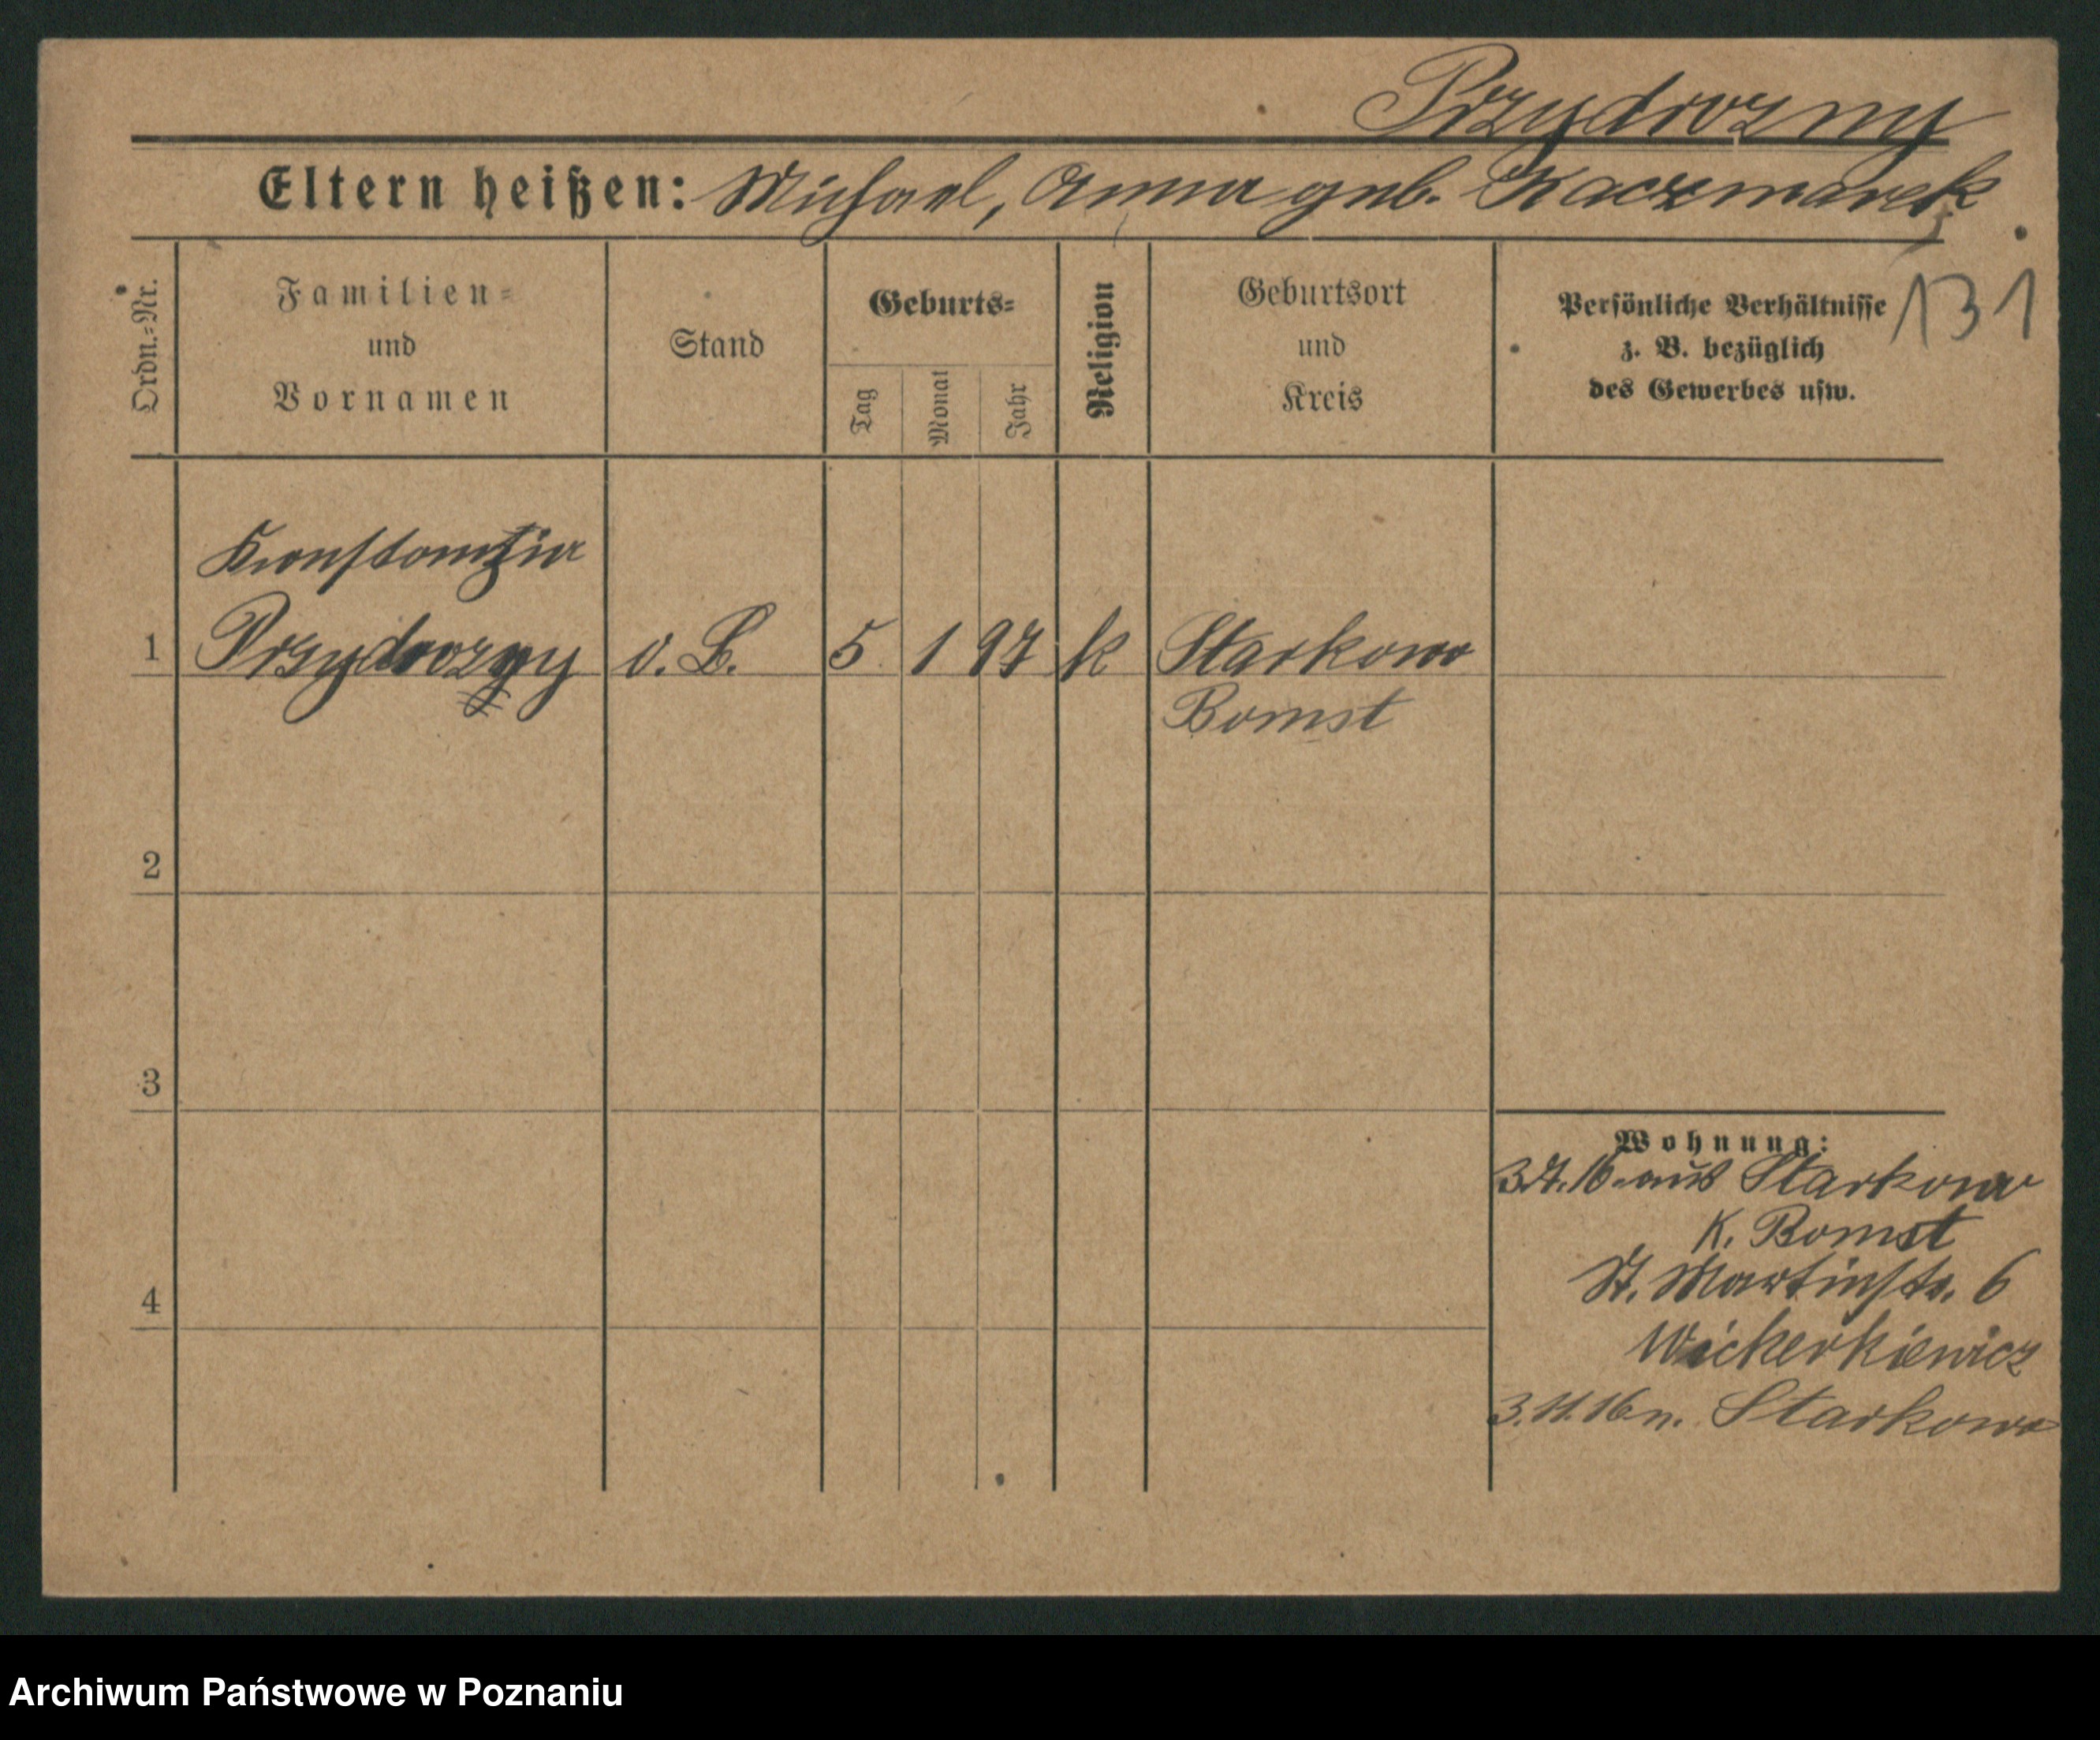 Przydrozny
Eltern heißen: Michael, Anna geb. Kaczmarek
131
Ordn.=Nr.
Familien=
und
Vornamen
Stand
Geburts=
Tag
Monat
Jahr
Religion
Geburtsort
und
Kreis
Persönliche Verhältnisse
z. B. bezüglich
des Gewerbes usw.
Konstantia
1 Przydrozny o. B. 5. 1 97 k Starkowo
Bomst
2
3
4
Wohnung:
16. aus Starkowo
K. Bomst
St. Martinstr. 6
Wickerkiewicz
3.11.16 n. Starkowo
Archiwum Państwowe w Poznaniu